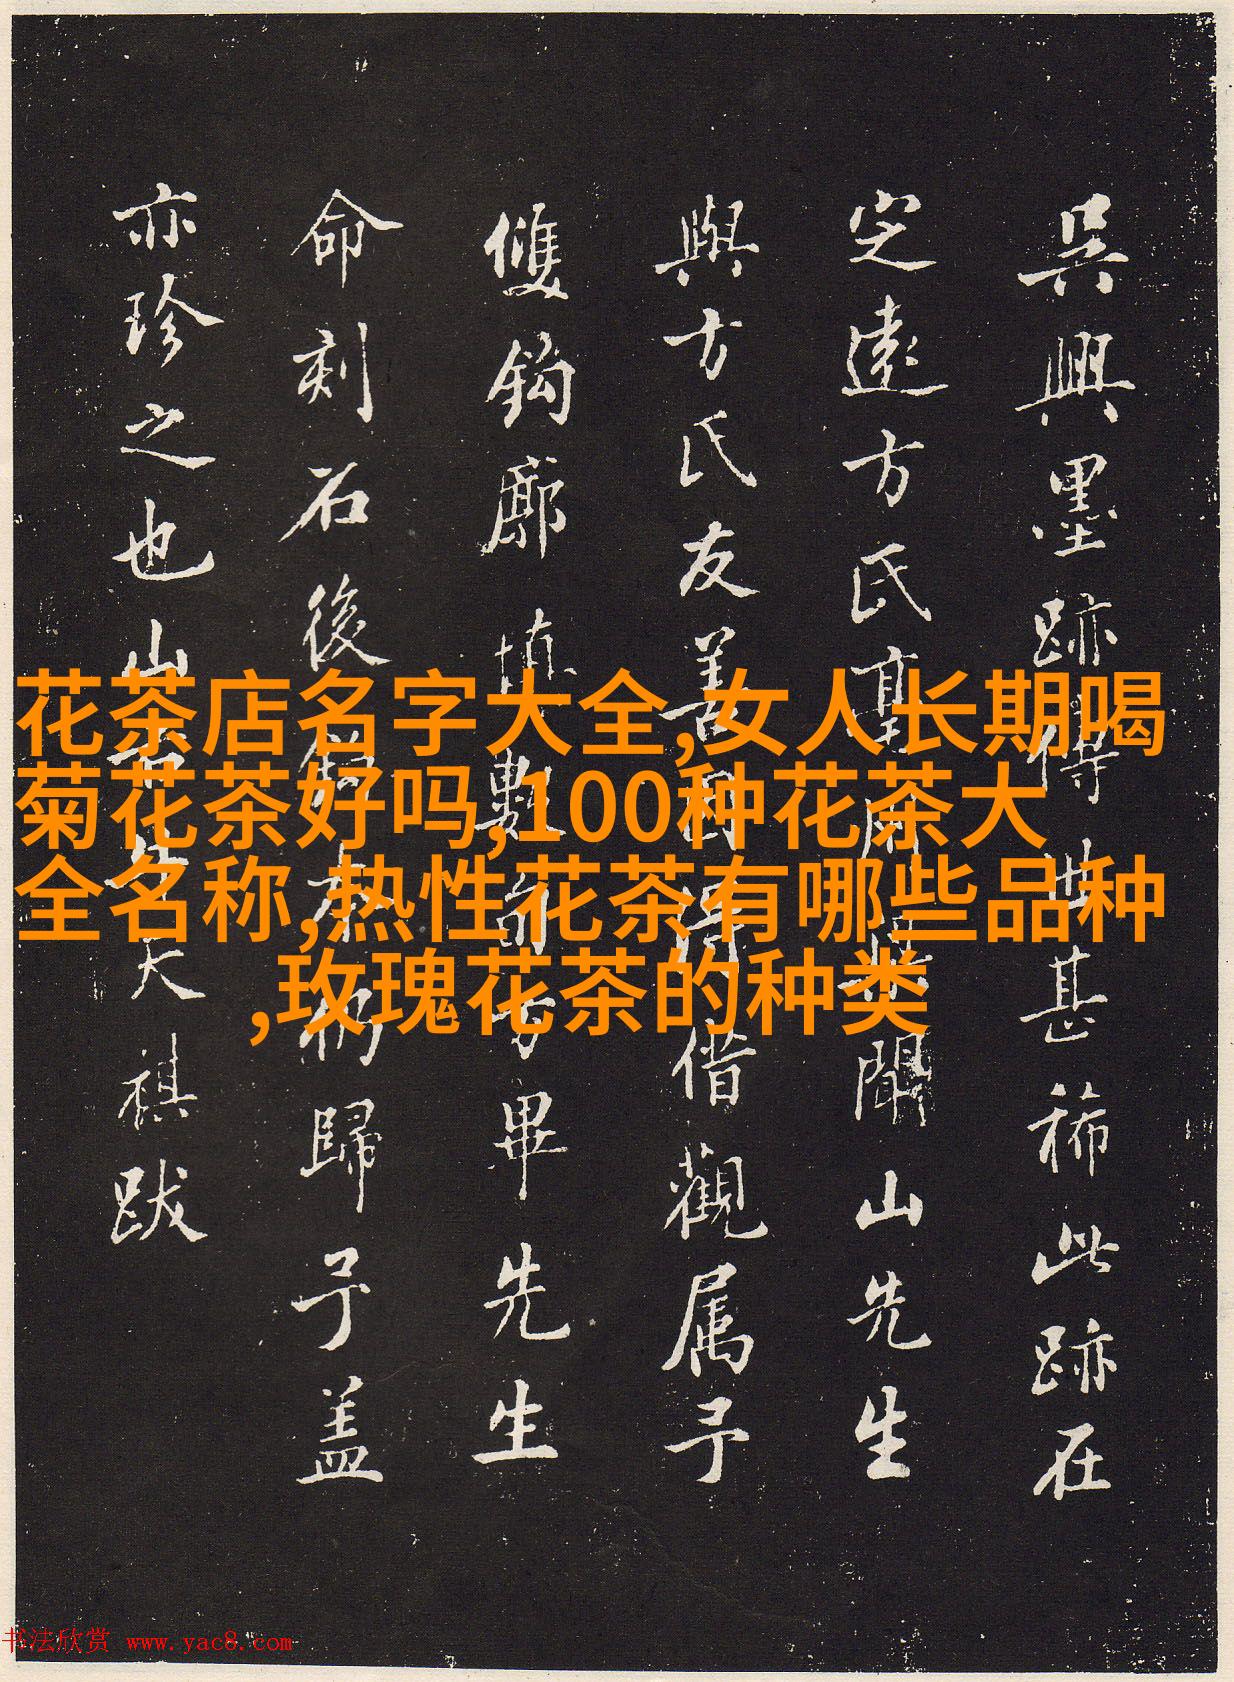 吳興墨跡傳世甚稀此跡在
定遠方氏享聞山先生
與方氏友善借觀属予
雙鈎廓填數畢先生
命刻石後歸予盖
亦珍之也山大祺跋
花茶店名字大全,女人长期喝
菊花茶好吗,100种花茶大
全名称,热性花茶有哪些品种
,玫瑰花茶的种类
书法欣赏 www.yac8.com